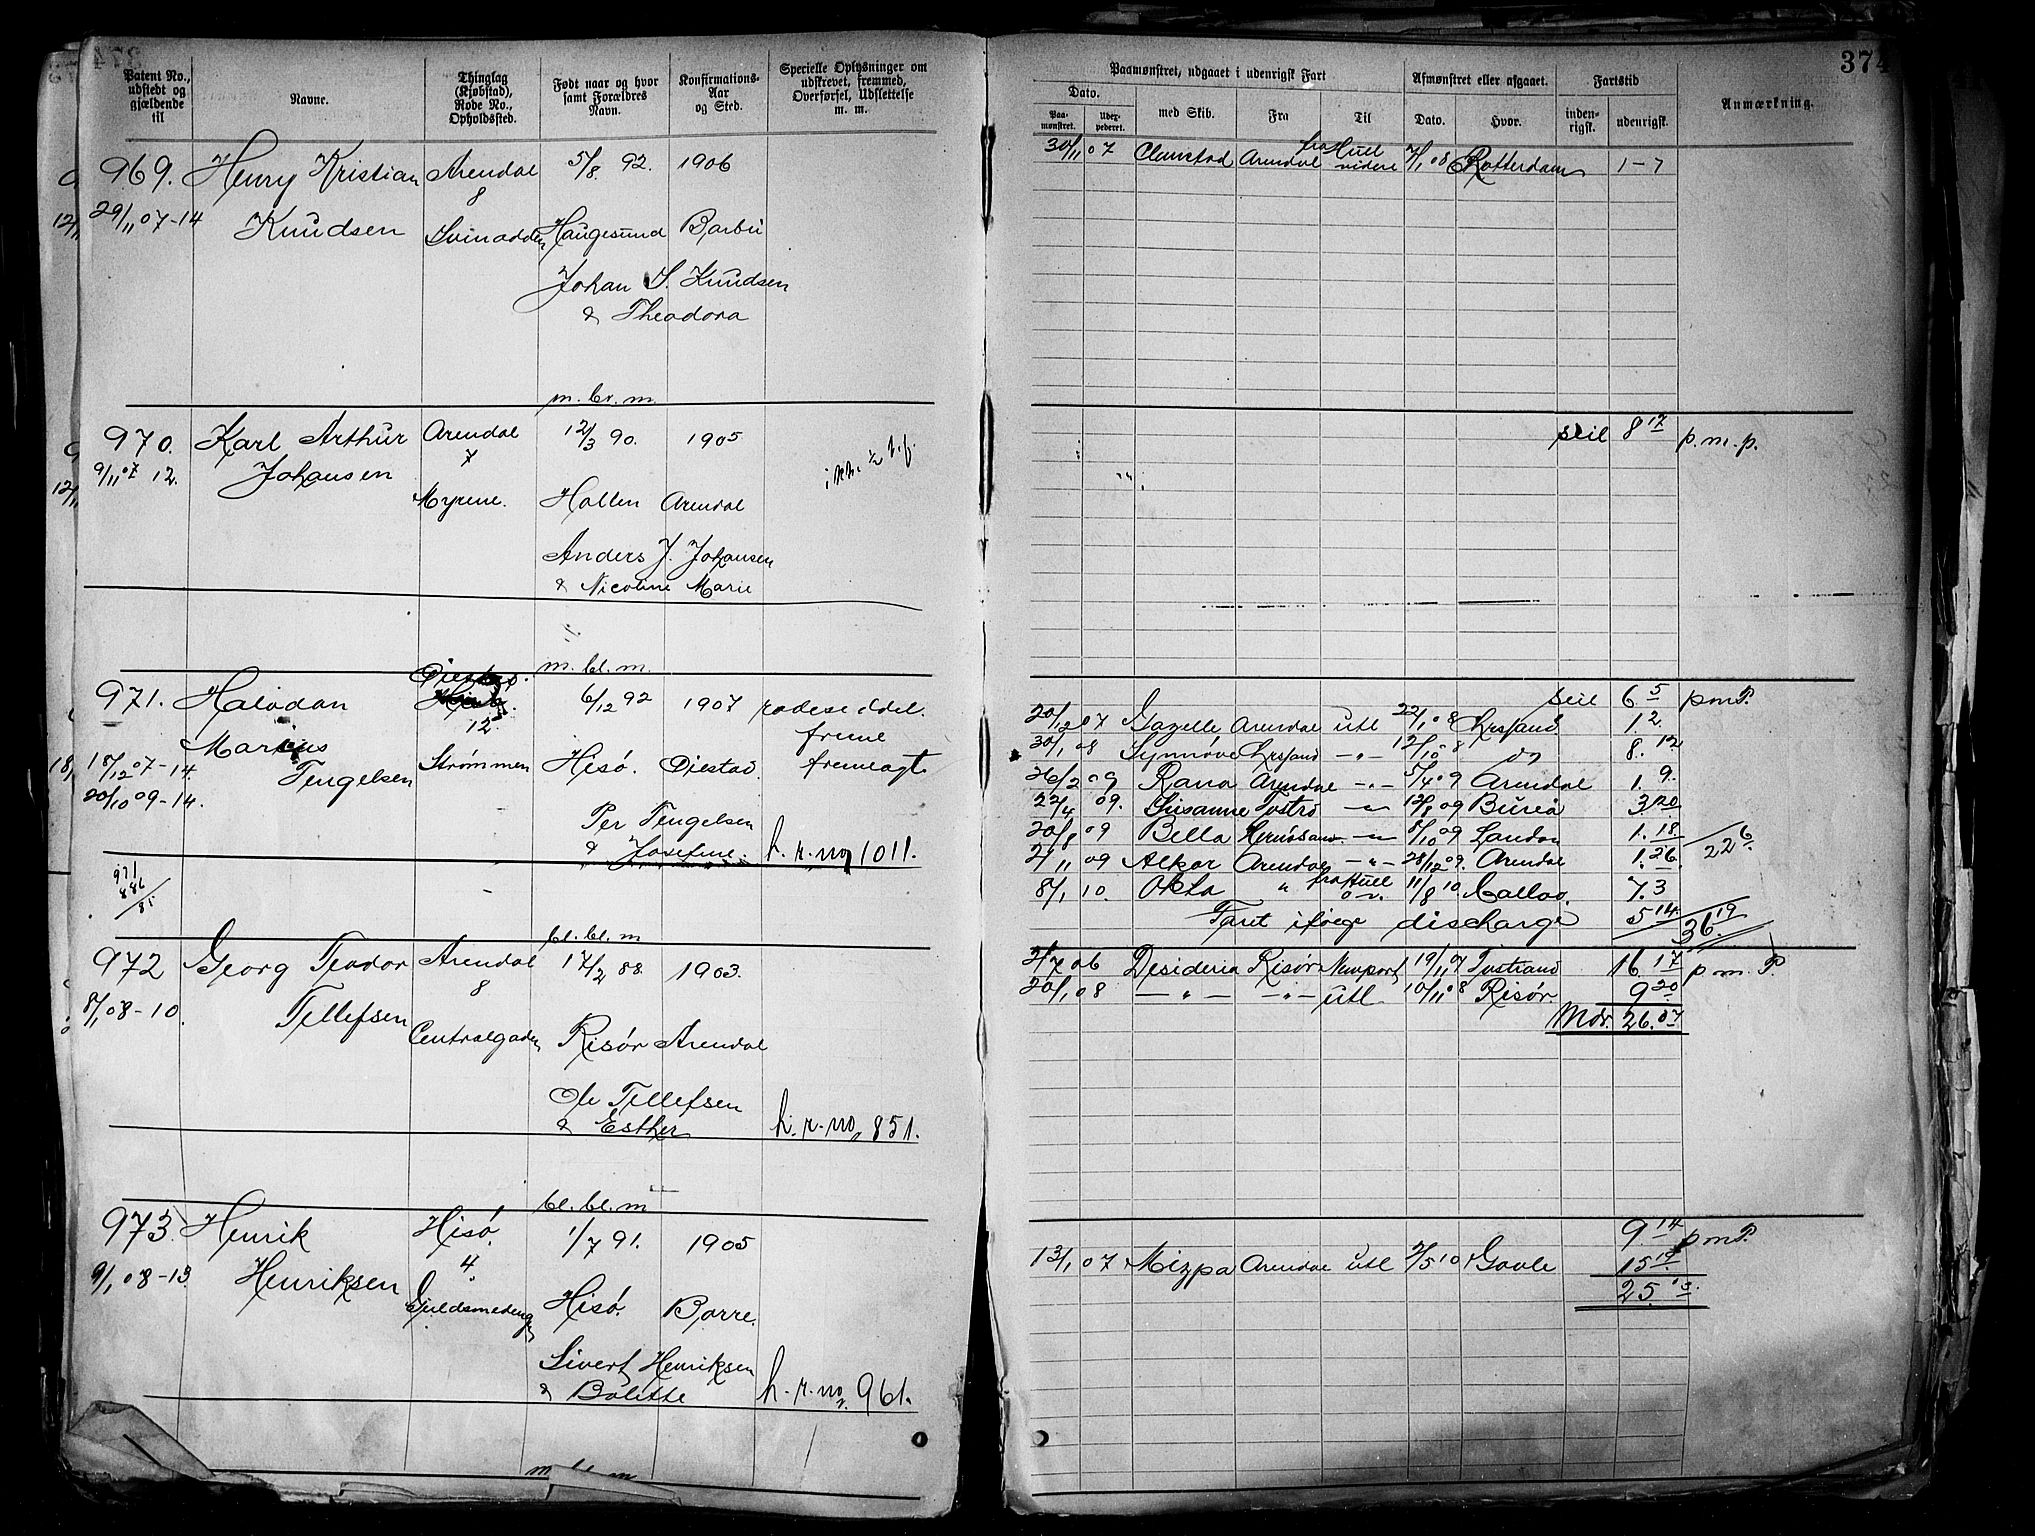 374
Patent No., udstedt og gjældende til
Navne.
Thinglag (Kjøbstad), Rode No., Opholdssted.
Født naar og hvor samt Forældres Navn.
Konfirmations-Aar og Sted.
Specielle Oplysninger om udskrevet, fremmed, Overførsel, Udslettelse m. m.
Paamønstret, udgaaet i udenrigsk Fart
Dato.
Paa-mønstret.
med Skib.
Fra
Til
Afmønstret eller afgaaet.
Dato.
Hvor.
Fartstid
inden-rigsk.
udenrigsk.
Anmærkning.
969. Henry Kristian Arendal 5/8 92. 1906
8
29/11 07-14 Knudsen Haugesund Barbu
Johan S. Knudsen
& Theodora
30/11 07 Arendal fra Hull videre 7/1 08 Rotterdam 1-7
m. br. m.
970. Karl Arthur Arendal 12/3 90. 1905
9/11 07 12. Johansen 7
Myrene. Arendal
Anders J. Johansen
& Nicoline Marie
seil 8 17 p.m.p.
m. bl. m.
971. Halvdan Øiestad. 6/12 92 1907
12.
Marius
18/12 07-14. Tengelsen Strømmen Hisø. Øiestad.
20/10 09-14.
Per Tengelsen
& Josefine. h. r. no 1011.
seil 6 5 pmP.
20/12 07 Gazelle Arendal utl 22/1 08 Krssand 1.2.
30/1 08 Synnøve Krssand -"- 12/10 08 8.12
26/2 09 Rana Arendal -"- 5/4 09 Arendal 1.9.
22/4 09. Susanne -"- 12/8 09 Bureå 3.20
20/8 09 Bella Hernøsand -"- 8/10 09 London 1.18 22 6
2/11 09 Alkor Arendal -"- 28/12 09. Arendal 1.26.
8/1 10. Okta " fra Hull 11/8 10 Callao. 7.3
Faret ifølge discharge 5 14 36.19
971
886
85
bl. bl. m
972 Georg Teodor Arendal 17/2 88. 1903.
8/1 08-10. Tellefsen 8
Centralgaden Risør Arendal
Ole Tellefsen
& Esther h. r. no 851.
2/7 06 Desideria Risør Newport 19/11 07 Tvstrand 16.17 p.m.P.
20/1 08 -"- -"- utl 10/11 08 Risør 9 20
Mdr. 26.07
bl. bl. m
973. Henrik Hisø. 1/7 91. 1905
9/1 08-13. Henriksen 4.
Hisø. Borre.
Sivert Henriksen
& Bolette h. r. no 961.
9.14 pmP.
13/1 07 Mizpa Arendal utl Gavle 15 19
25.